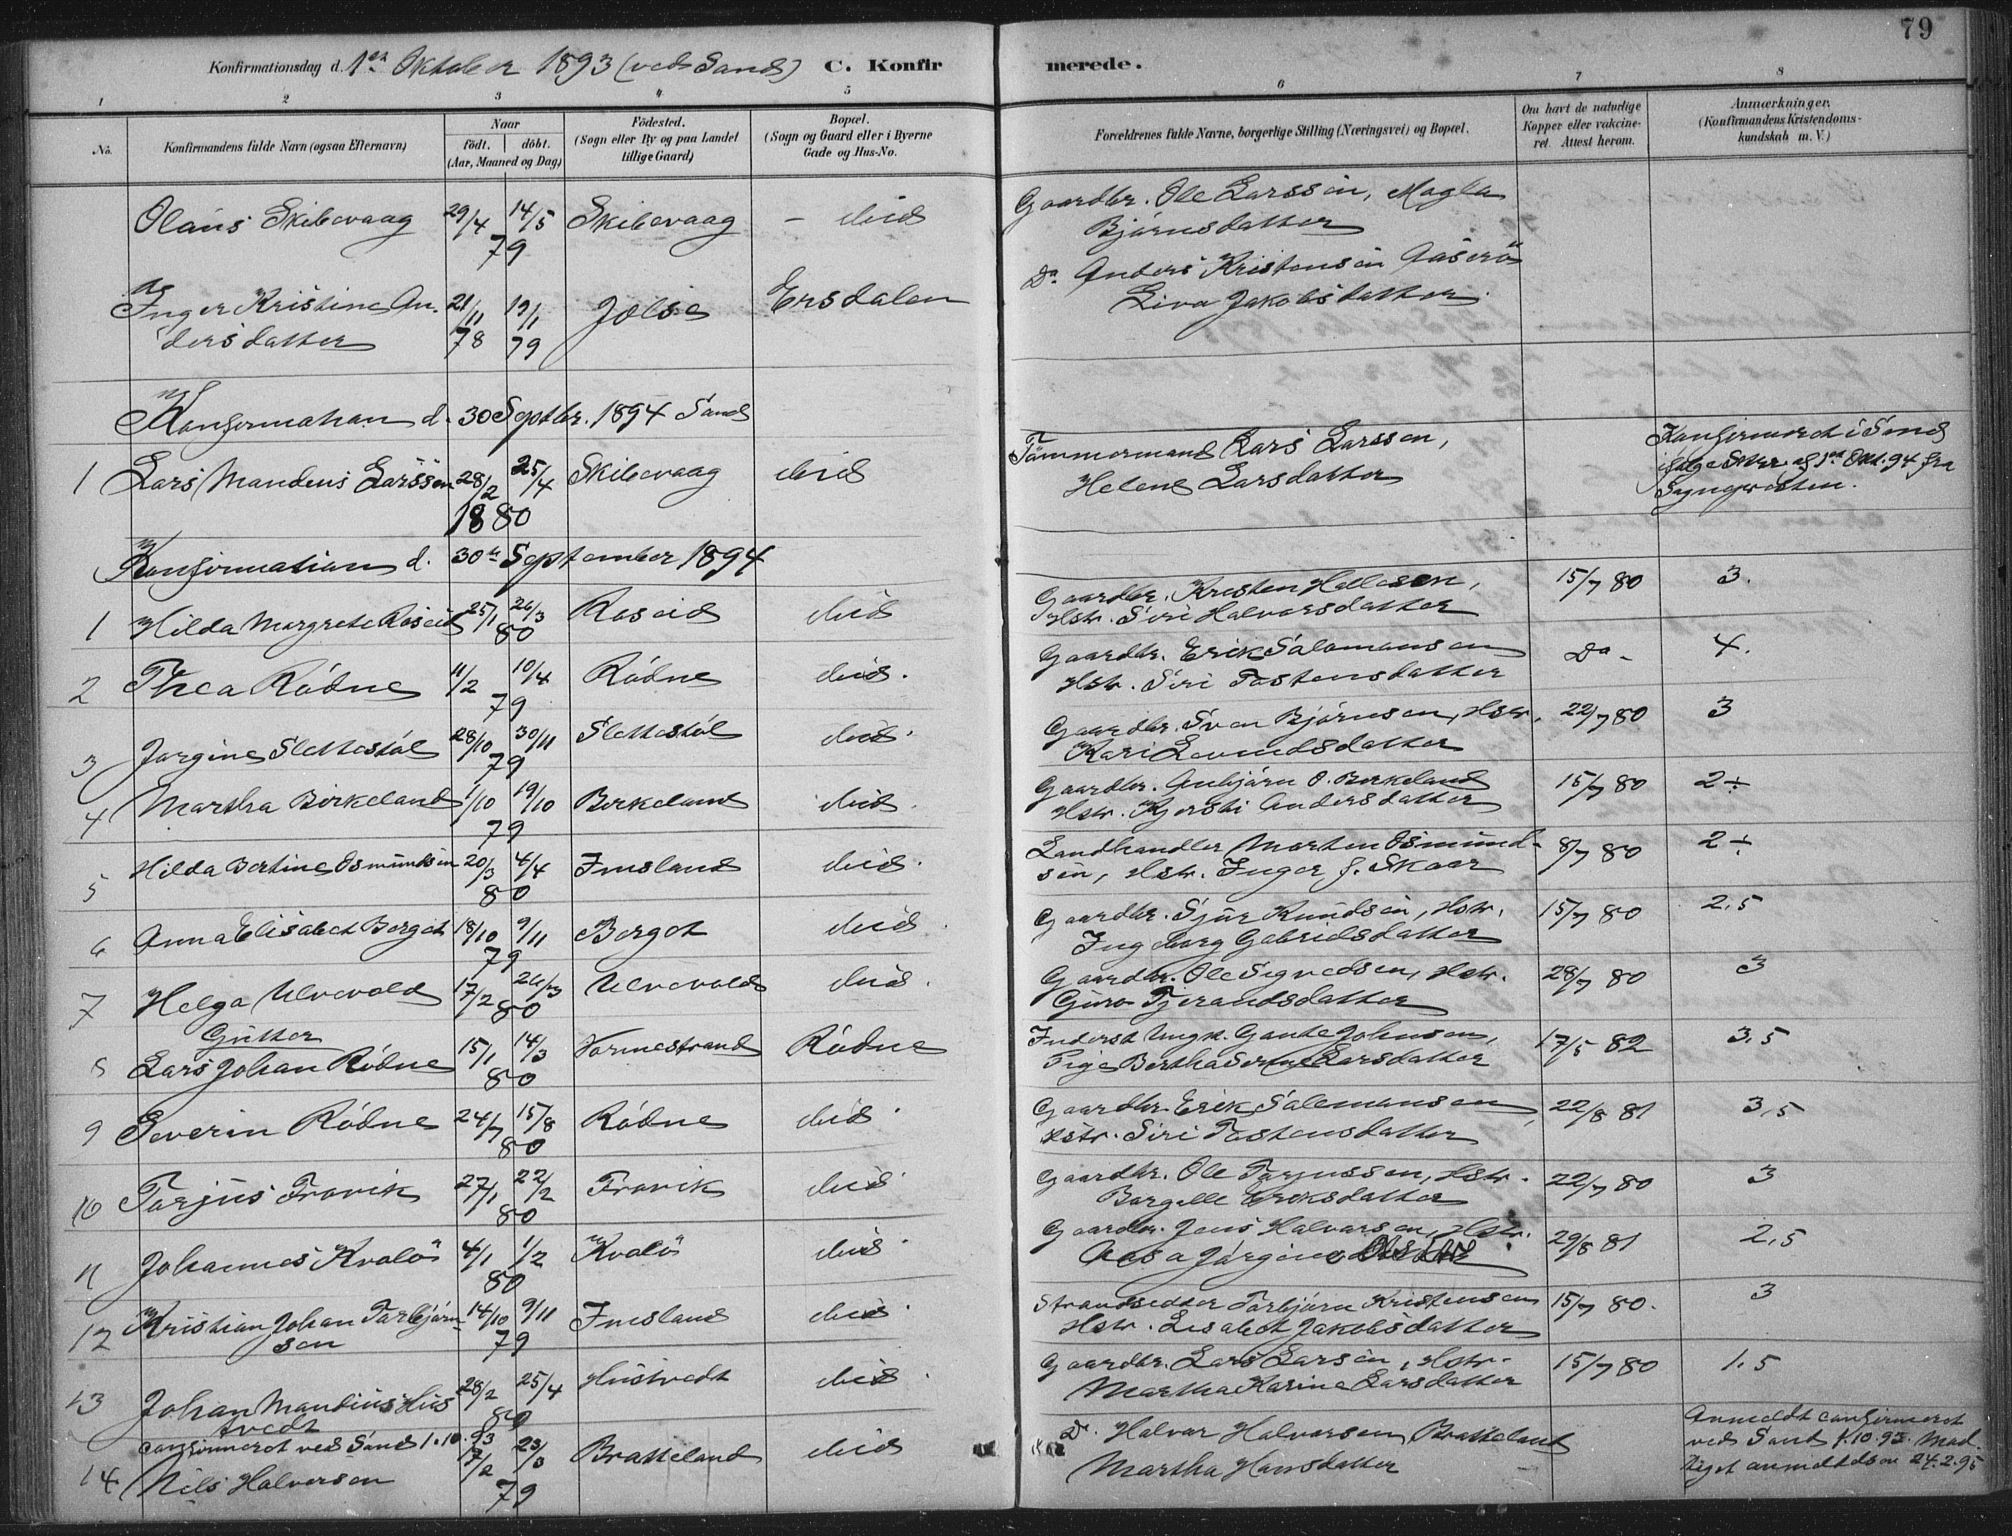 79
Konfirmationsdag d. 1ste Oktober 1893 (ved Sand) C. Konfirmerede.
1 2 3 4 5 6 7 8
No. Konfirmandens fulde Navn (ogsaa Efternavn) Naar födt. döbt. (Aar, Maaned og Dag) Födested. (Sogn eller By og paa Landet tillige Gaard) Bopæl. (Sogn og Gaard eller i Byerne Gade og Hus-No. Forældrenes fulde Navne, borgerlige Stilling (Næringsvei) og Bopæl. Om havt de naturlige Kopper eller vakcineret. Attest herom. Anmærkninger. (Konfirmandens Kristendomskundskab m. V.)
Olaus Skibevaag 29/4 14/5 79 Skibevaag – ibid Gaardbr. Ole Larssen, Magla
Bjørnsdatter
Inger Kristine An- 21/11 78 19/1 79 Jelse Ersdalen Do Anders Kristensen Aaserö
dersdatter Liva Jakobsdatter.
Konfirmation d. 30 Septbr. 1894 Sand
1 Lars Mandius Larssen 28/2 25/4 1880 Skibevaag ibid Tömmermand Lars Larssen,
Helene Larsdatter
Konfirmeret i Sand
ifølge Skr. af 1ste Okt. 94 fra
Sognepresten.
Konfirmation d. 30te September 1894
1 Hilda Margrete Røseid 25/1 26/3 80 Røseid ibid Gaardbr. Kristen Hellesen,
Hstr. Siri Halvorsdatter 15/7 80 3.
2 Thea Rödne 11/2 10/4 79 Rödne ibid. Gaardbr. Erik Salomonsen
Hstr. Siri Tostensdatter Do - 4.
3 Jorgine Slettestöl 28/10 30/11 79 Slettestöl ibid. Gaardbr. Sven Bjørnsen, Hstr.
Kari Evindsdatter 22/7 80 3
4 Martha Birkeland 1/10 19/10 79 Birkeland ibid. Gaardbr. Anbjørn O. Berkeland
Hstr. Kjersti Andersdatter 15/7 80 2÷
5 Hilda Bertine Osmundsen 20/3 4/4 80 Imsland ibid. Landhandler Morten Osmund-
sen, Hstr. Inger f. Skaar 8/7 80 2÷
6 Anna Elisabet Berget 18/10 9/11 79 Berget ibid. Gaardbr. Sjur Knudsen, Hstr.
Ingeborg Gabrielsdatter 15/7 80 2.5
7 Helga Ulvevold 17/2 26/3 80 Ulvevold ibid. Gaardbr. Ole Sigvedsen, Hstr.
Guro Tjerandsdatter 28/7 80 3
Gutter
8 Lars Johan Rödne 15/1 14/3 80 Vormestrand Rödne Inderst Ungk. Gaute Johnsen,
Pige Bertha Serine Larsdatter 17/5 82 3.5
9 Severin Rödne 24/7 15/8 80 Rödne ibid. Gaardbr. Erik Salomonsen,
Hstr. Siri Tostensdatter 22/8 81 3.5
10 Torjus Frovik 27/1 22/2 80 Frovik ibid. Gaardbr. Ole Torjussen, Hstr.
Borgille Eriksdatter 22/7 80 3
11 Johannes Kvalö 4/1 1/2 80 Kvalö ibid. Gaardbr. Jens Halvorsen, Hstr.
Aasa Jörgine Olsdtr. 29/8 81 2.5
12 Kristian Johan Torbjørn- 14/10 9/11 79 Imsland ibid. Strandsidder Torbjørn Kristensen
sen Hstr. Lisabet Jakobsdatter 15/7 80. 3
13 Johan Mandius Hus- 28/2 25/4 80 Hustvedt ibid. Gaardbr. Lars Larsen, Hstr.
tvedt Martha Karine Larsdatter 15/7 80 1.5
confirmeret ved Sand 1.10.93
14 Nils Halversen 17/2 23/3 79 Bratteland ibid Do. Halvor Halvorsen Bratteland
Martha Hansdatter
Anmeldt confirmeret
ved Sand 1.10.93. Mod-
taget anmeldelsen 24.2.95